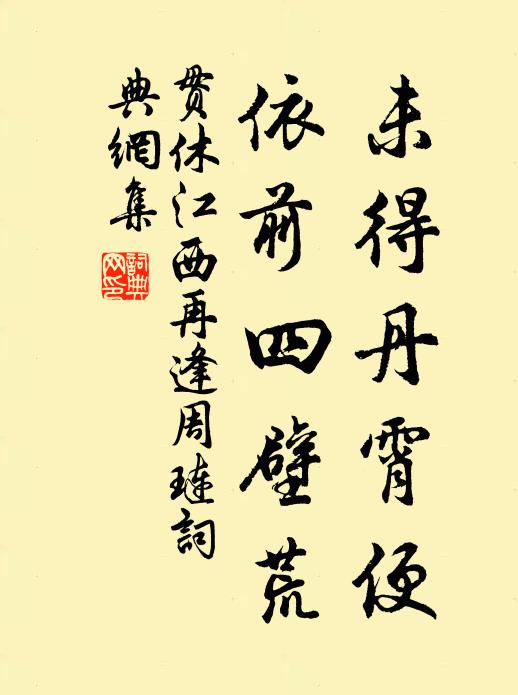 未得丹霄便
依前四壁荒
贯休江西再逢周琏詞
典網集
詞典网印